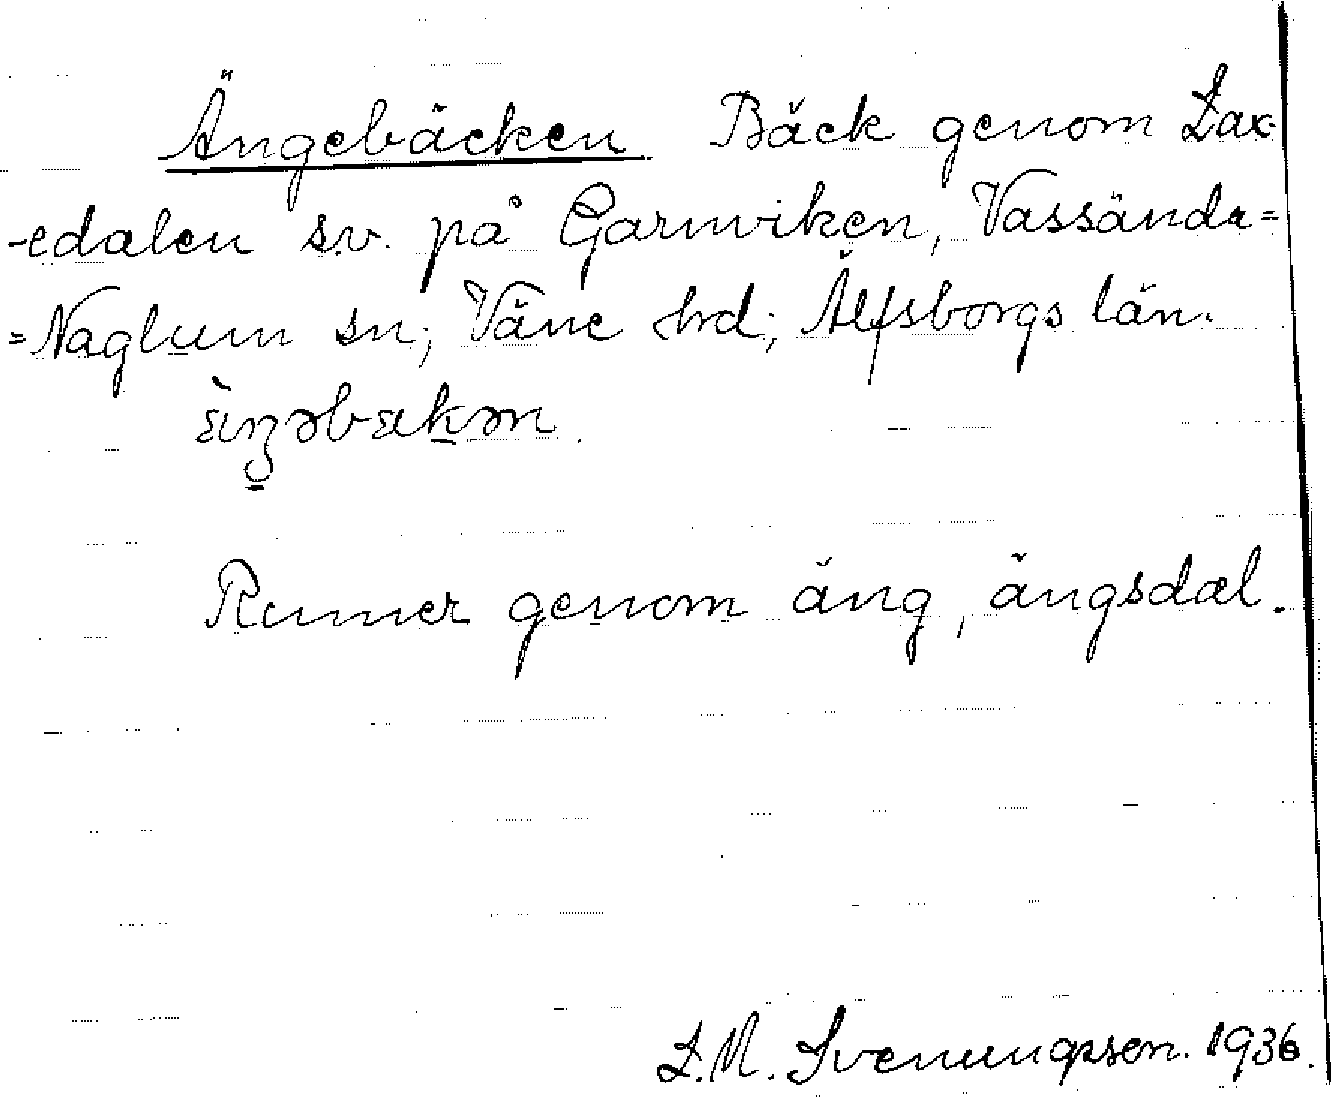 Ängebäcken Bäck genom Lax-
-edalen s.v. på Garnviken, Vassända=
=Naglum sn; Väne hrd; Älfsborgs län.
Rinner genom äng, ängsdal.
L.M. Svenungsson. 1936.